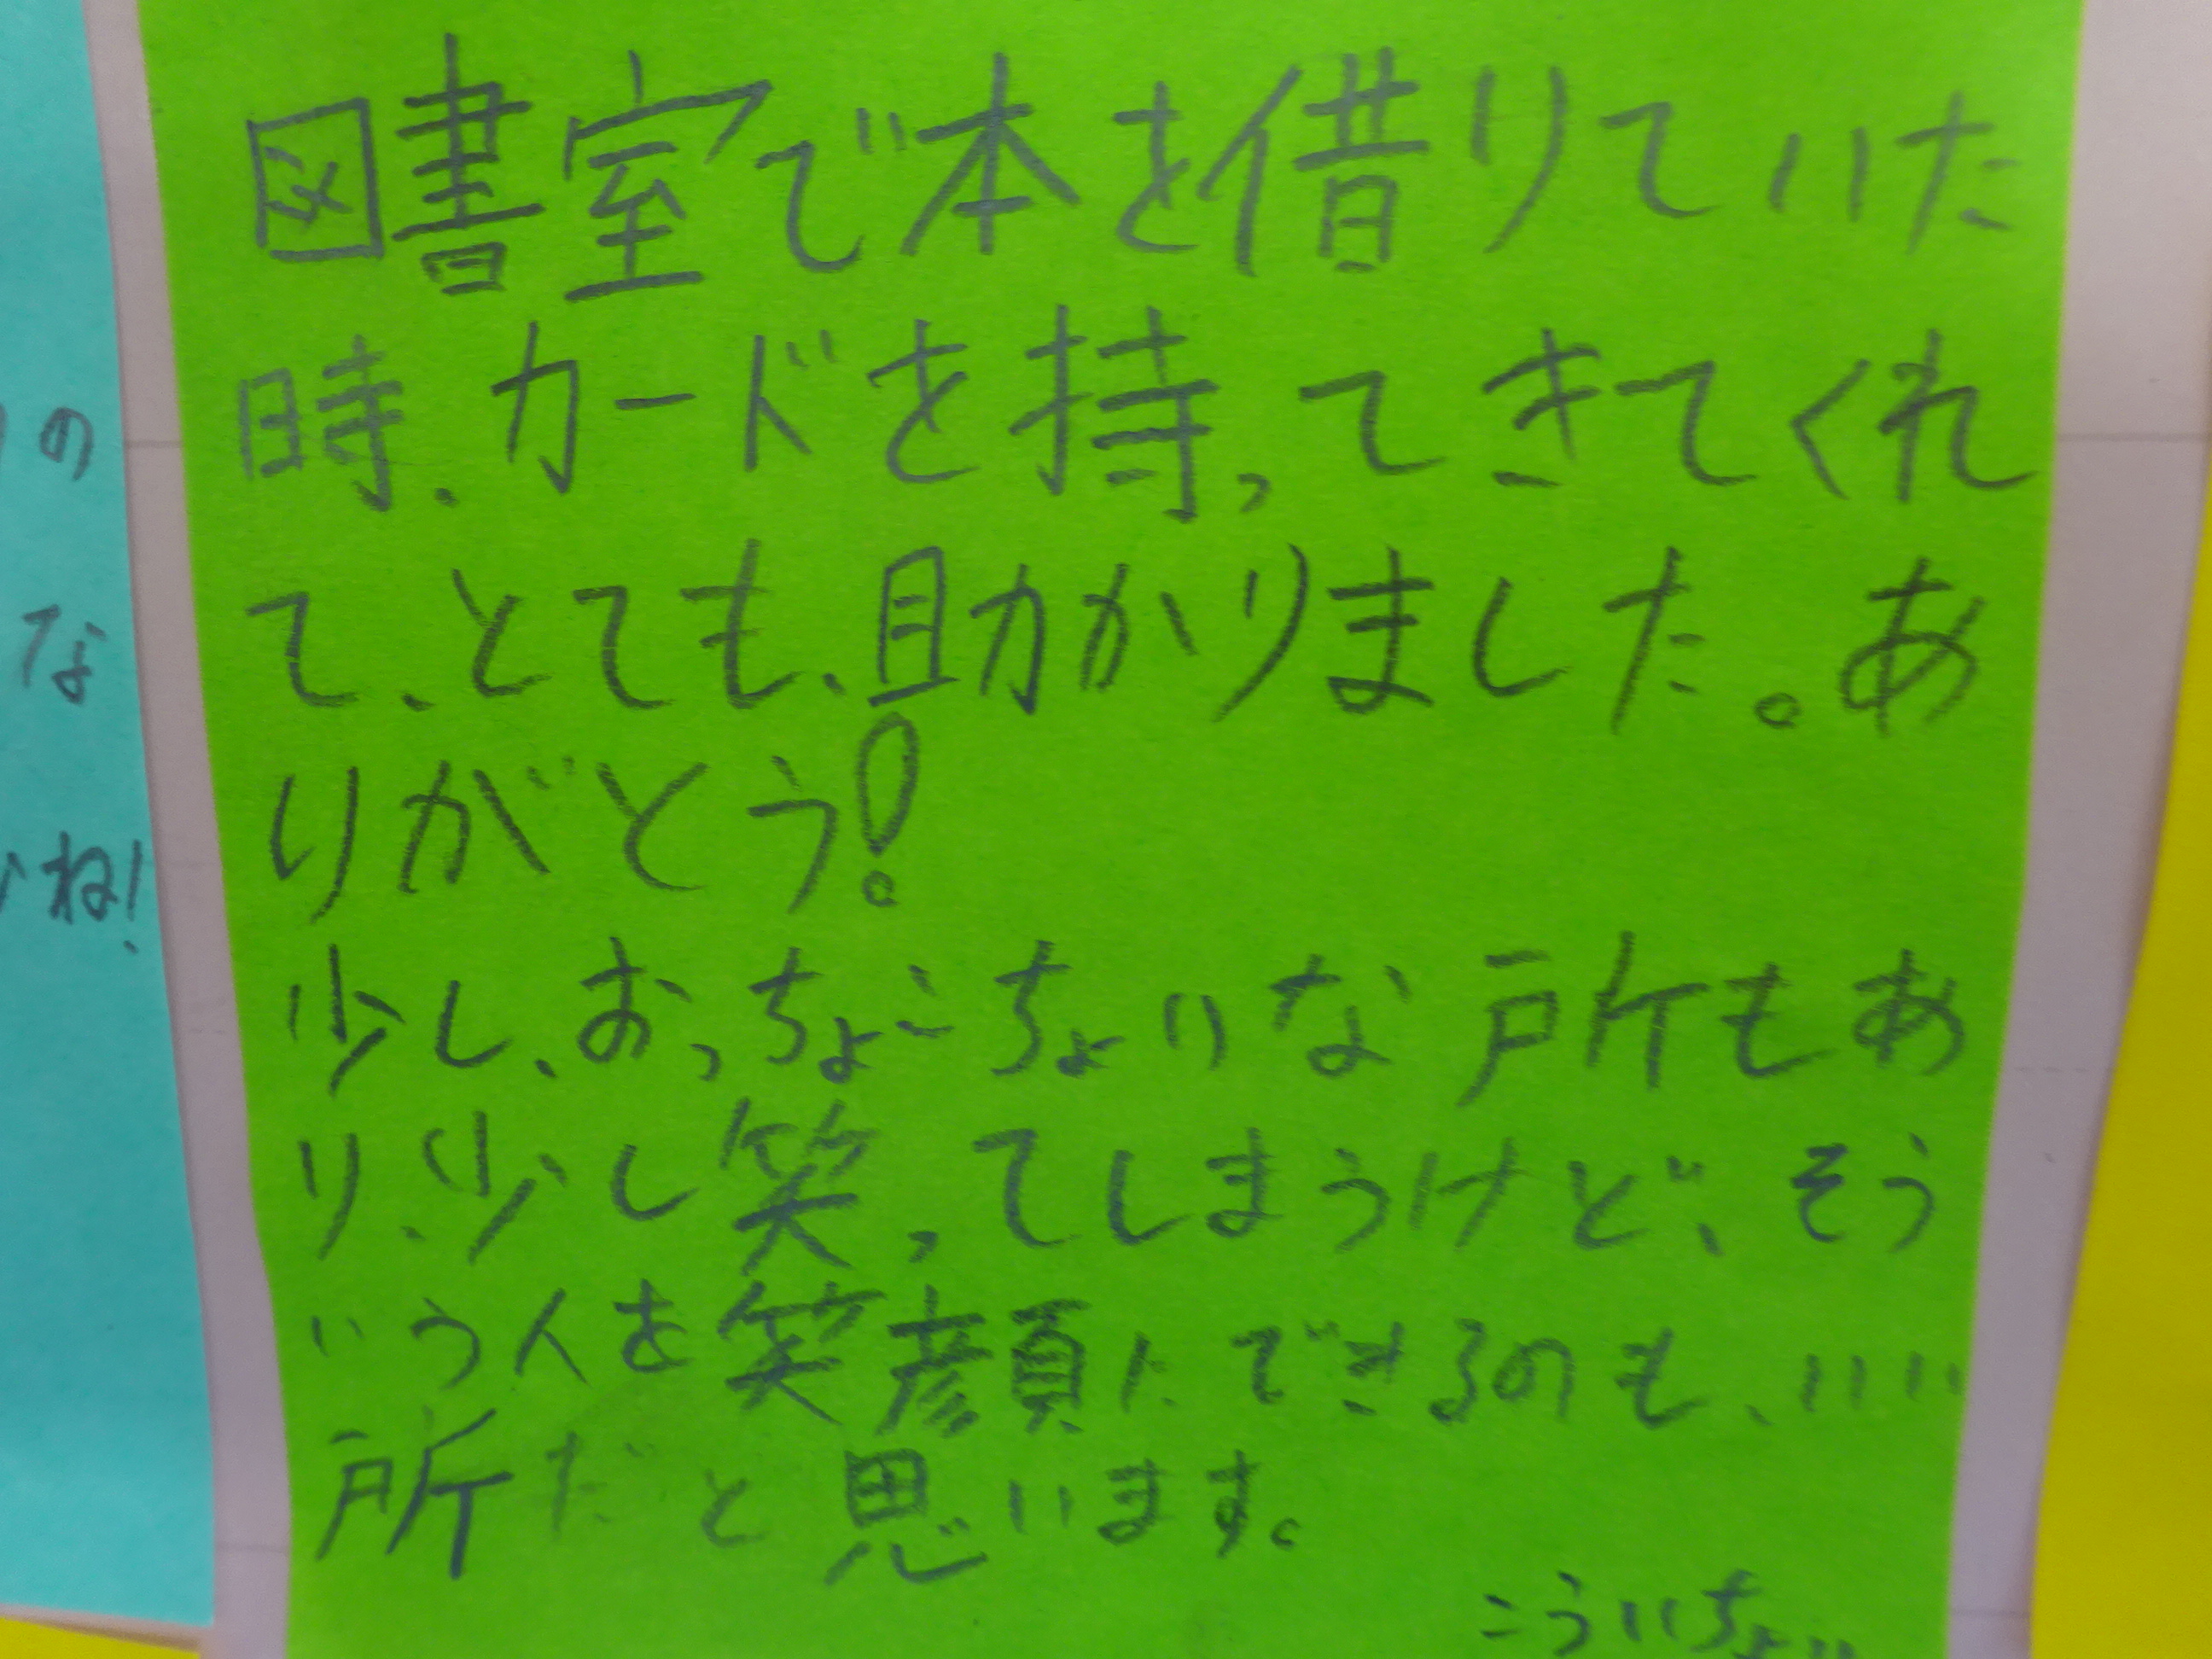 の
な
ね!
図書室で本を借りていた
時、カードを持ってきてくれ
て、とても、助かりました。あ
りがとう!
少し、おっちょこちょいな所もあ
り、少し笑ってしまうけど、そう
いう人を笑顔にできるのも、いい
所だと思います。